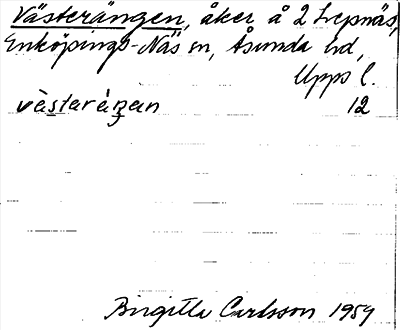 Västerängen, åker å 2 Lepnäs,
Enköpings-Näs sn, Åsunda hd,
Upps l.
västaräŋan 12
Birgitta Carlsson 1959